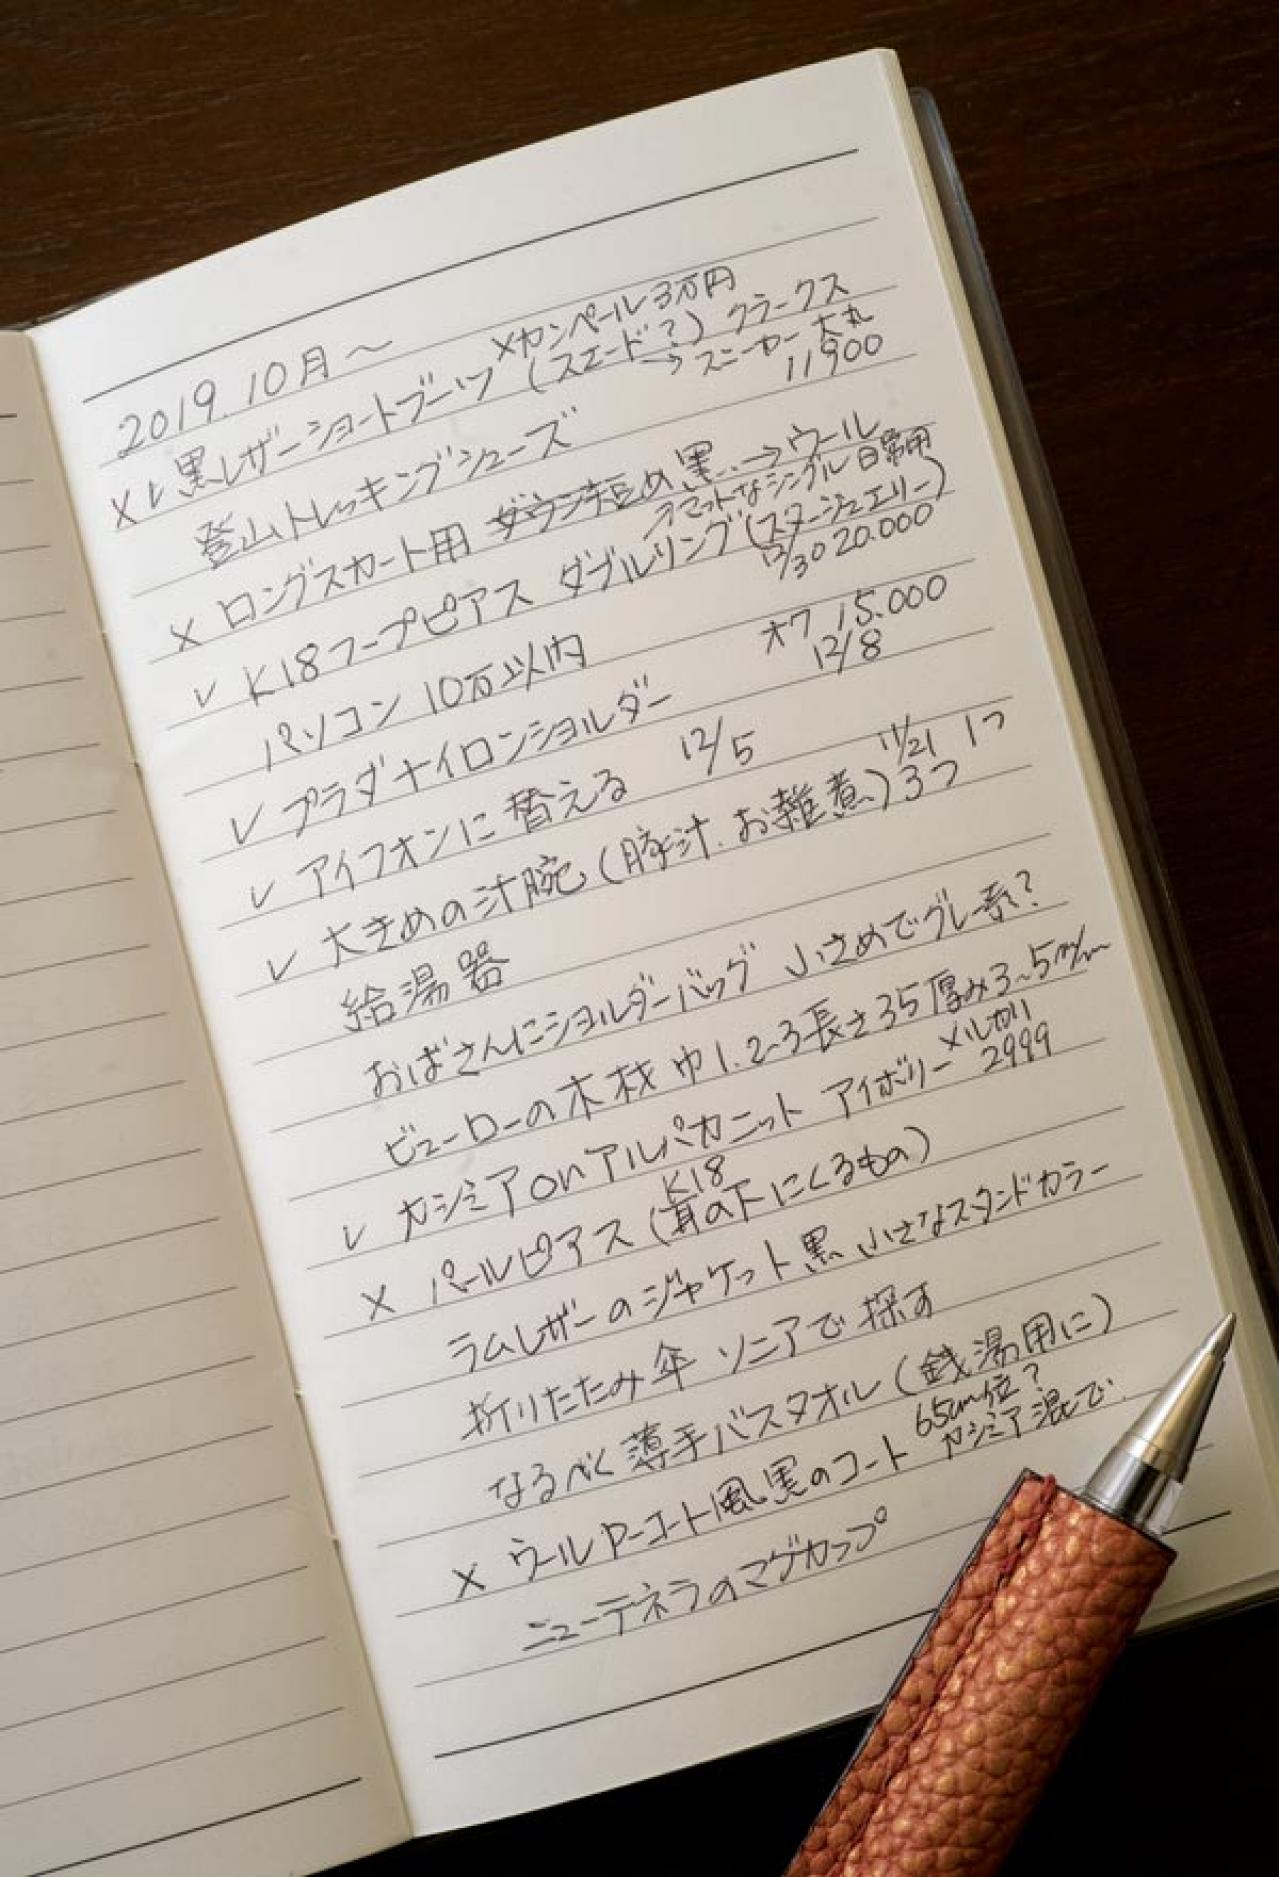 2019.10月〜
×カンペール3万円
×✓黒レザーショートブーツ(スエード?)クラークス
→スニーカー 大丸
11900
登山トレッキングシューズ
× ロングスカート用 ダウン短め黒…→ウール
マットなシングル日常用
✓ K18フープピアス ダブルリング(スタージュエリー)
12/30 20.000
パソコン 10万以内
✓ プラダナイロンショルダー オフ 15.000
12/8
✓ アイフォンに替える 12/5
11/21 1つ
✓ 大きめの汁腕(豚汁.お雑煮)3つ
給湯器
おばさんにショルダーバッグ 小さめでグレー系?
ビューローの木材 巾1.2~3長さ35厚み3~5m/m
メルカリ
✓ カシミアorアルパカニット アイボリー 2999
K18
× パールピアス(耳の下にくるもの)
ラムレザーのジャケット黒 小さなスタンドカラー
折りたたみ傘 ソニアで探す
なるべく薄手バスタオル(銭湯用に)
65cm位?
× ウールPーコート風黒のコート カシミア混で
ニューテネラのマグカップ